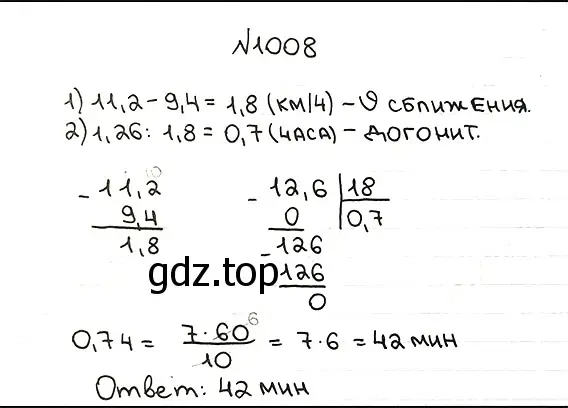 №1008
1) 11,2 - 9,4 = 1,8 (км/ч) - υ сближения.
2) 1,26 : 1,8 = 0,7 (часа) - догонит.
10
- 11,2
9,4
1,8
- 12,6 | 18
0 | 0,7
- 126
126
0
gdz.top
0,7ч = 7·60⁶ / 10 = 7·6 = 42 мин
Ответ: 42 мин